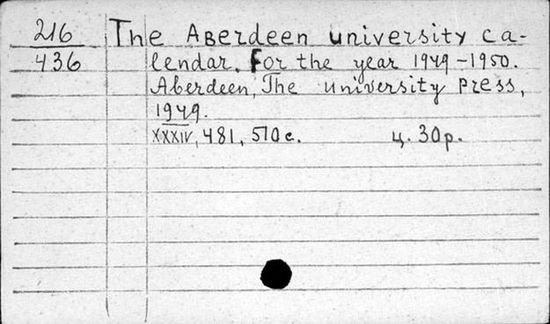 216
436
The Aberdeen university ca-
lendar. For the year 1949-1950.
Aberdeen, The university press,
1949.
XXXIV, 481, 510 c. ц. 30р.